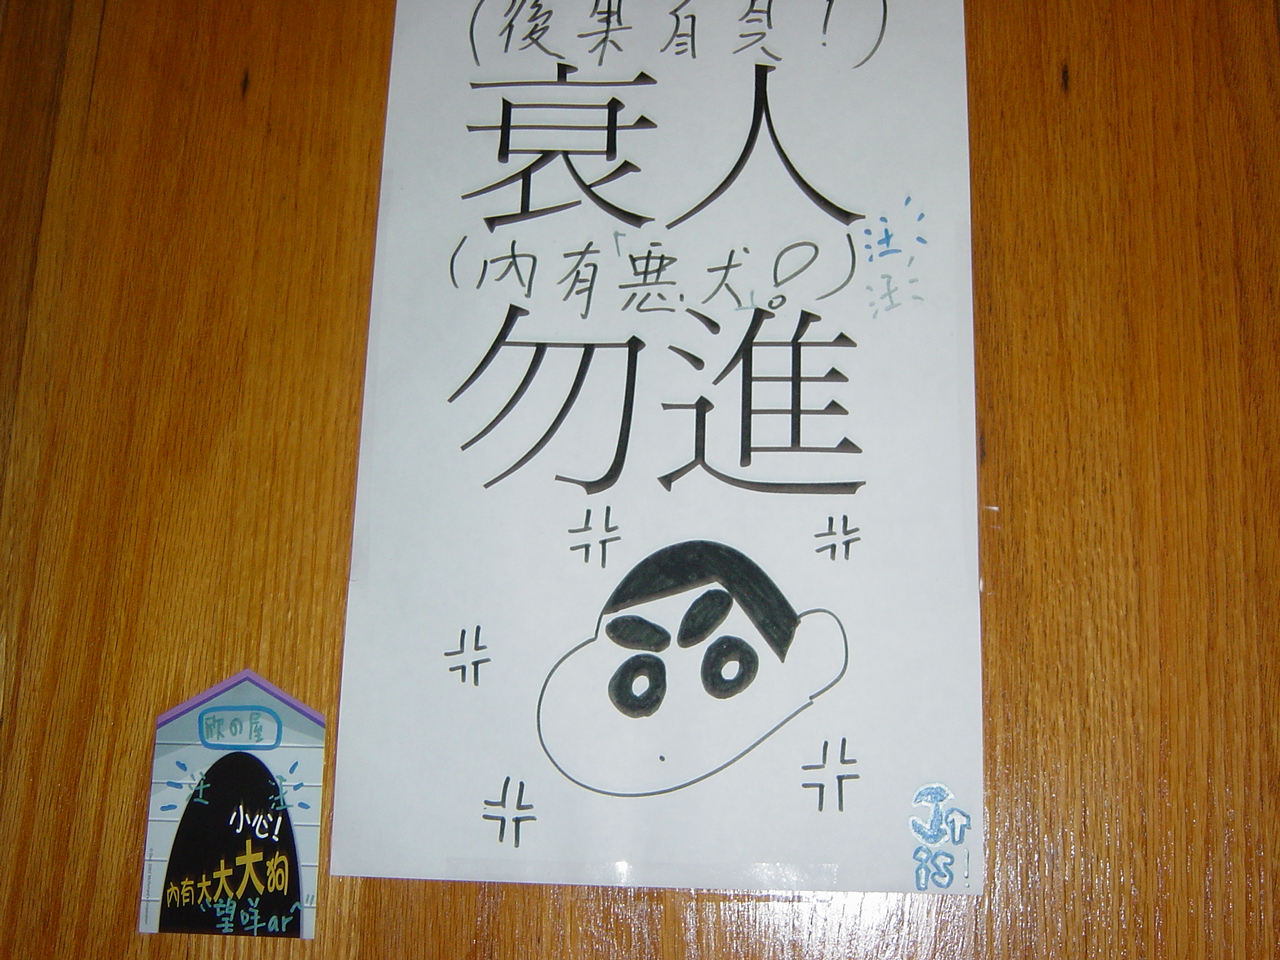 (後果自負!)
衰人
(內有「惡犬」!)
汪
汪
勿進
欣の屋
汪 汪
小心!
內有大大大狗
"望咩ar~"